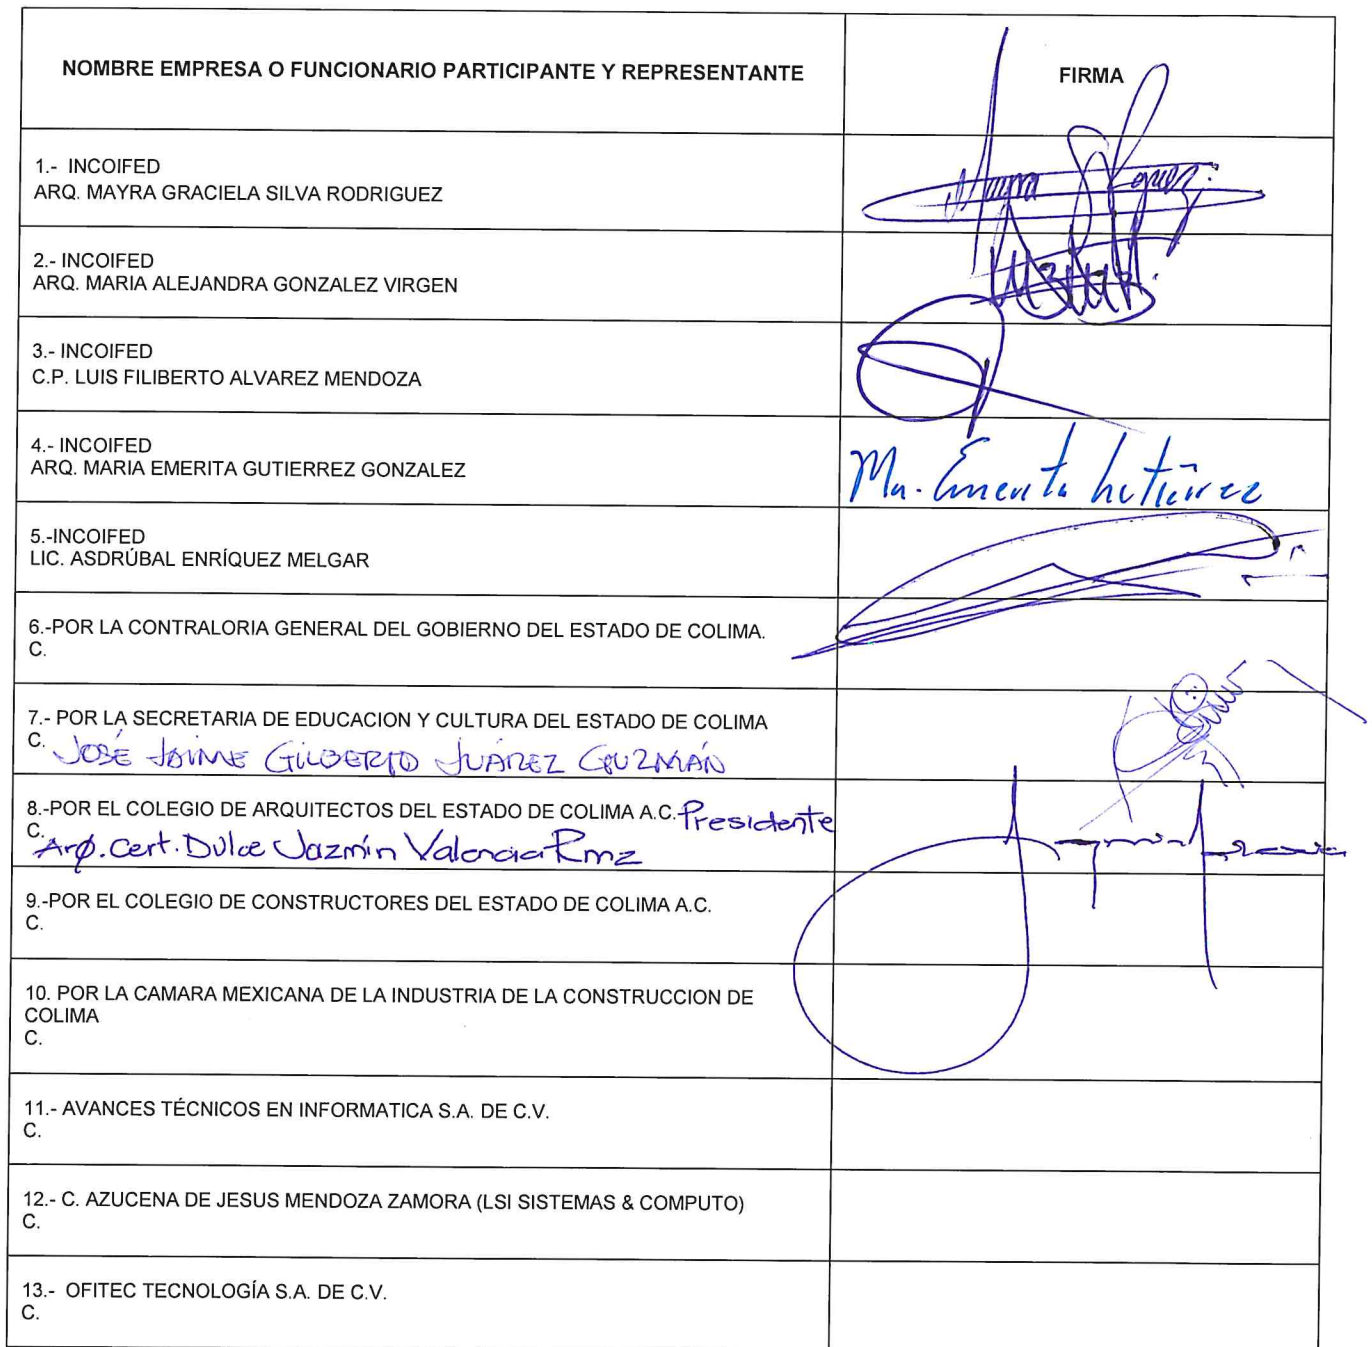 NOMBRE EMPRESA O FUNCIONARIO PARTICIPANTE Y REPRESENTANTE
FIRMA
1.- INCOIFED
ARQ. MAYRA GRACIELA SILVA RODRIGUEZ
2.- INCOIFED
ARQ. MARIA ALEJANDRA GONZALEZ VIRGEN
3.- INCOIFED
C.P. LUIS FILIBERTO ALVAREZ MENDOZA
4.- INCOIFED
ARQ. MARIA EMERITA GUTIERREZ GONZALEZ
Ma. Emerita Gutiérrez
5.-INCOIFED
LIC. ASDRÚBAL ENRÍQUEZ MELGAR
6.-POR LA CONTRALORIA GENERAL DEL GOBIERNO DEL ESTADO DE COLIMA.
C.
7.- POR LA SECRETARIA DE EDUCACION Y CULTURA DEL ESTADO DE COLIMA
C. JOSÉ JAIME GILBERTO JUÁREZ GUZMÁN
8.-POR EL COLEGIO DE ARQUITECTOS DEL ESTADO DE COLIMA A.C. Presidente
C. Arq. Cert. Dulce Jazmín Valencia Rmz
9.-POR EL COLEGIO DE CONSTRUCTORES DEL ESTADO DE COLIMA A.C.
C.
10. POR LA CAMARA MEXICANA DE LA INDUSTRIA DE LA CONSTRUCCION DE
COLIMA
C.
11.- AVANCES TÉCNICOS EN INFORMATICA S.A. DE C.V.
C.
12.- C. AZUCENA DE JESUS MENDOZA ZAMORA (LSI SISTEMAS & COMPUTO)
C.
13.- OFITEC TECNOLOGÍA S.A. DE C.V.
C.